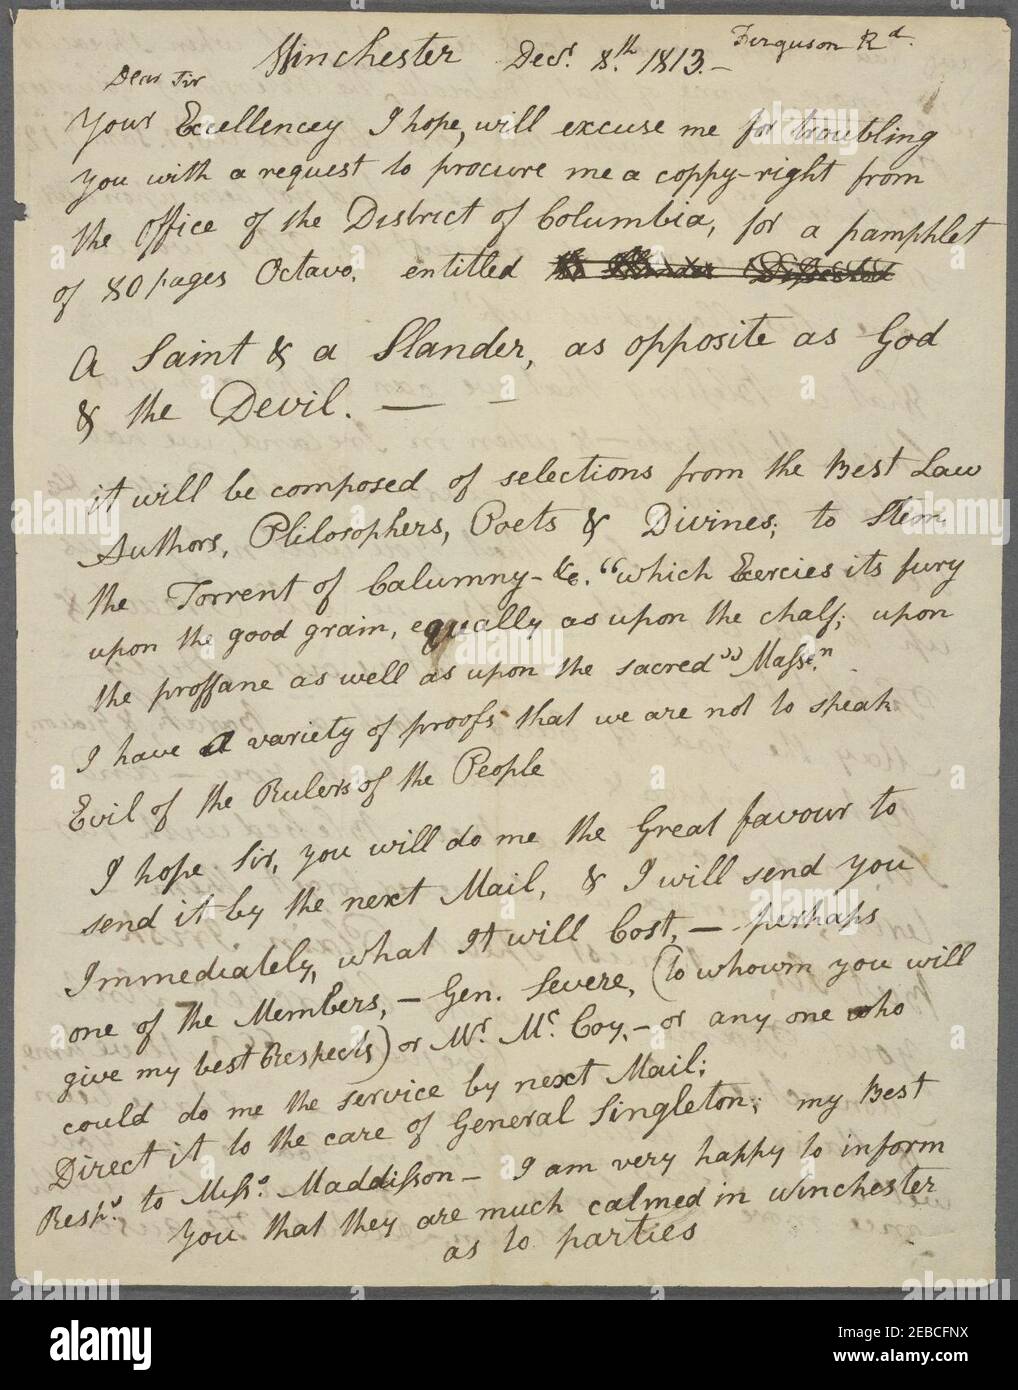 Ferguson Rd.
Winchester Decr. 8.th 1813.—
Dear Sir
Your Excellencey I hope, will excuse me for troubling
you with a request to procure me a coppy-right from
the office of the District of Columbia, for a pamphlet
of 80 pages Octavo, entitled
A Saint & a Slander, as opposite as God
& the Devil. — –
it will be composed of selections from the Best Law
Authors, Philosophers, Poets & Divines; to Stem
the Torrent of Calumny-&c. "which Exercies its fury
upon the good grain, equally as upon the chaff; upon
the proffane as well as upon the sacred"
I have a variety of proofs that we are not to speak
Evil of the Rulers of the People
I hope Sir, you will do me the Great favour to
send it by the next Mail, & I will send you
Immediately, what It will Cost, — perhaps
one of the Members, — Gen. Severe, (to whowm you will
give my best Respects) or Mr. Mc. Coy,- or any one who
could do me the service by next Mail;
Direct it to the care of General Singleton; my Best
Resps. to Misso. Maddisson — I am very happy to inform
you that they are much calmed in winchester
as to parties
alamy
Image ID: 2EBCFNX
www.alamy.com